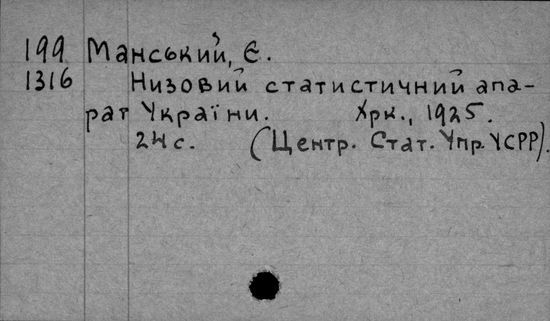 199 Манський, Є.
1316 Низовий статистичний апа-
рат України. Хрк., 1925.
24с. (Центр. Стат. Упр. УСРР).